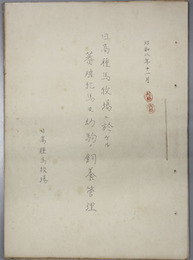 昭和八年十一月
日高種馬牧場ニ於ケル
蕃殖牝馬及幼駒ノ飼養管理
日高種馬牧場